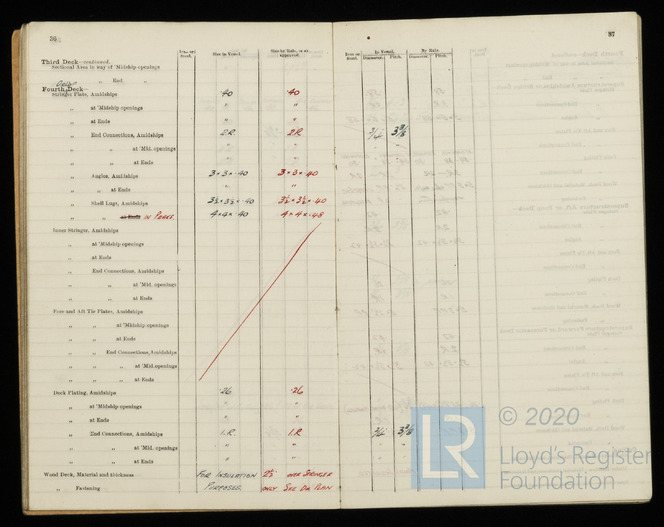 36
Iron or Steel.
Size in Vessel.
Size by Rule, or as approved.
Third Deck—continued.
Sectional Area in way of 'Midship openings
" " End "
Orlop
Fourth Deck—
Stringer Plate, Amidships ·40 ·40
" at 'Midship openings " "
" at Ends " "
" End Connections, Amidships 2R. 2R
" " at 'Mid. openings " "
" " at Ends " "
" Angles, Amidships 3×3×·40 3×3×·40
" " at Ends " "
" Shell Lugs, Amidships 3½×3½×·40 3½×3½×·40
" " at Ends IN PEAKS. 4×4×·40 4×4×·48
Inner Stringer, Amidships
" at 'Midship openings
" at Ends
" End Connections, Amidships
" " at 'Mid. openings
" " at Ends
Fore and Aft Tie Plates, Amidships
" " at 'Midship openings
" " at Ends
" " End Connections, Amidships
" " " at 'Mid. openings
" " " at Ends
Deck Plating, Amidships ·26 ·26
" at 'Midship openings " "
" at Ends " "
" End Connections, Amidships 1.R. 1.R
" " at 'Mid. openings " "
" " at Ends " "
Wood Deck, Material and thickness FOR INSULATION 2½ OVER STRINGER
" Fastening PURPOSES ONLY SEE DK PLAN
37
Iron or Steel.
In Vessel.
By Rule.
Diameter. Pitch. Diameter. Pitch.
3/4 3 3/8
"
"
3/4 3 3/8
LR
© 2020
Lloyd's Register
Foundation